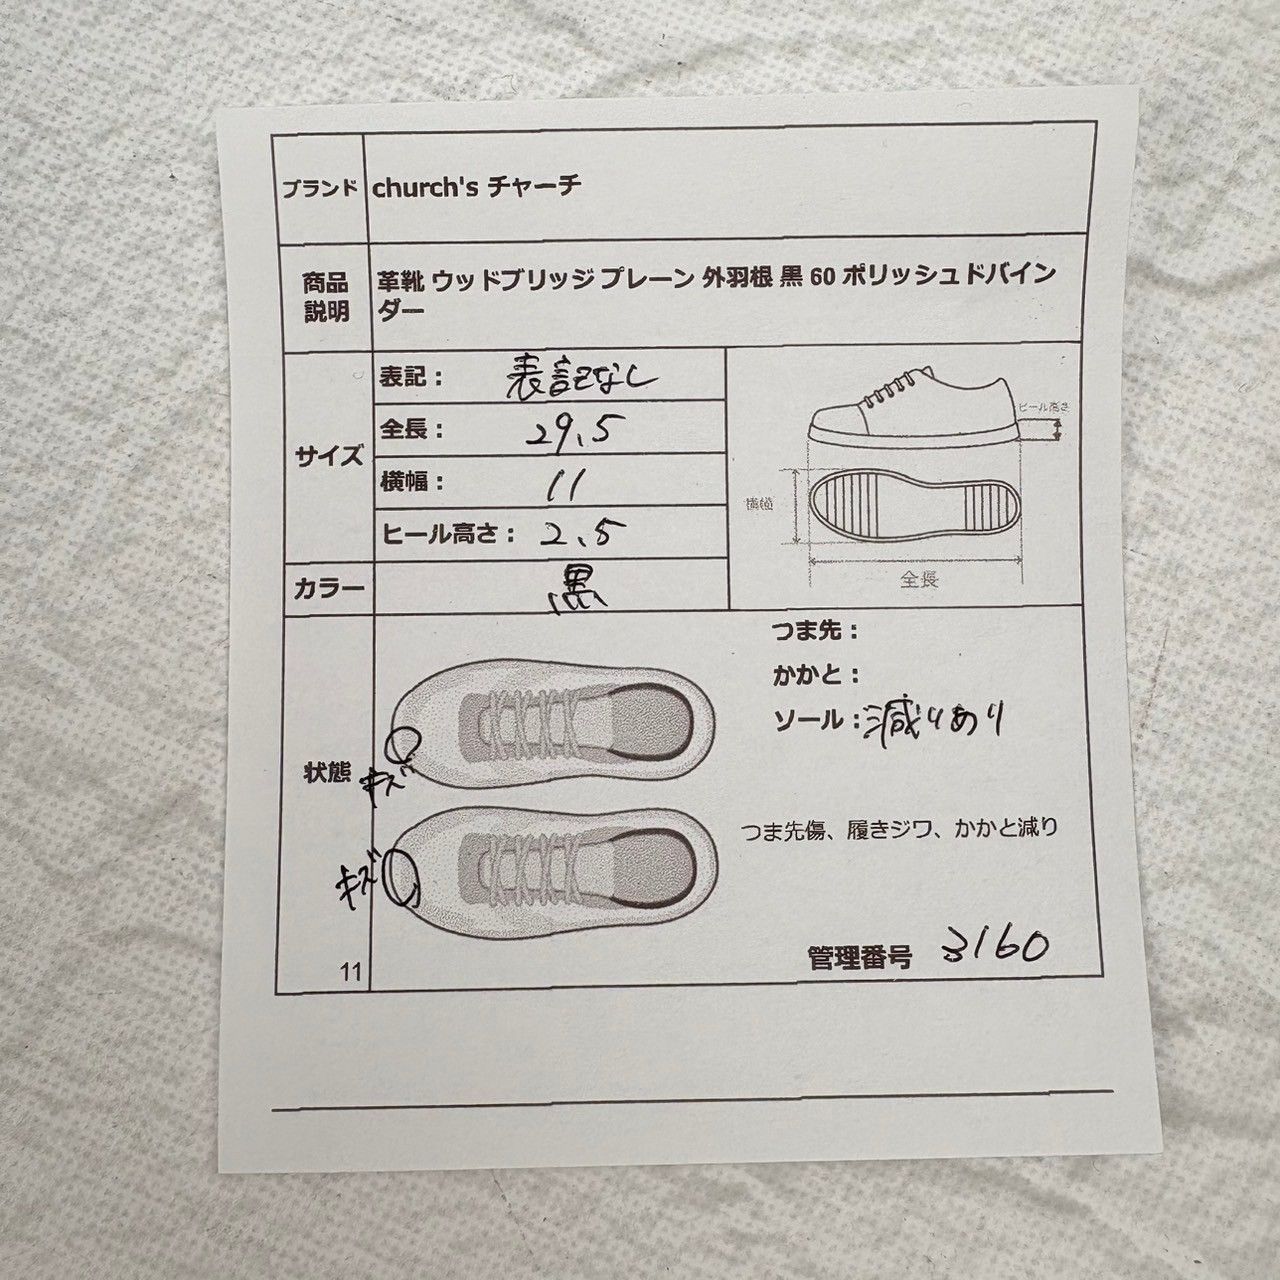 ブランド church's チャーチ
商品説明 革靴 ウッドブリッジ プレーン 外羽根 黒 60 ポリッシュドバイン
ダー
サイズ
表記： 表記なし
全長： 29.5
横幅： 11
ヒール高さ： 2.5
ヒール高さ
横幅
全長
カラー 黒
状態
つま先：
かかと：
ソール： 減りあり
キズ
キズ
つま先傷、履きジワ、かかと減り
管理番号 3160
11